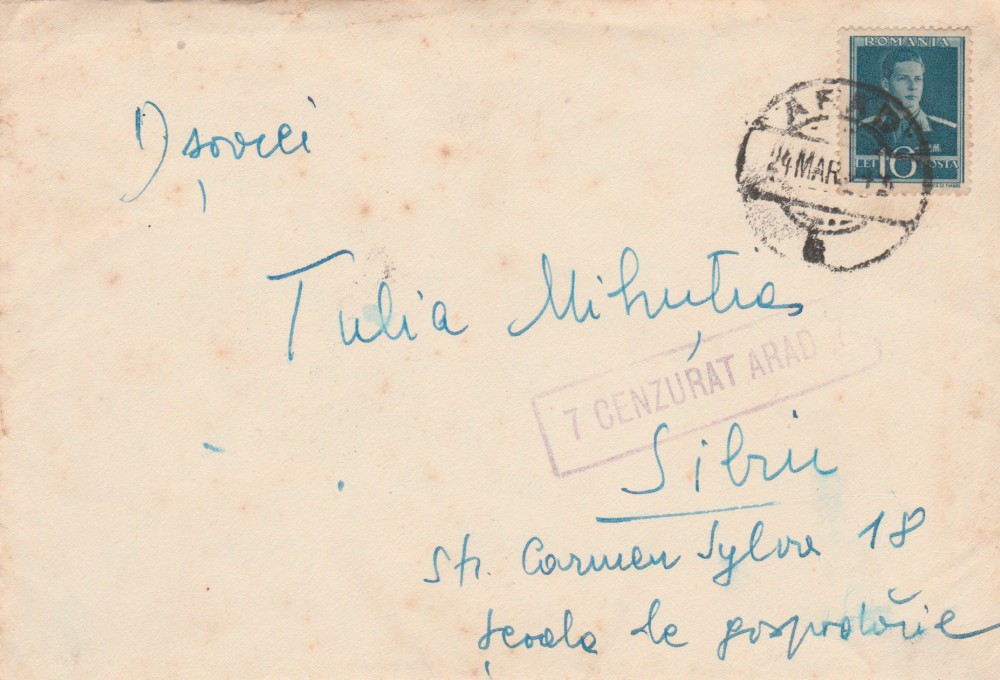 ROMANIA
LEI 16 POSTA
ARAD
24 MAR
Dșoarei
Tulia Mihuția
7 CENZURAT ARAD 7
Sibiu
Str. Carmen Sylva 18
Școala de gospodărie